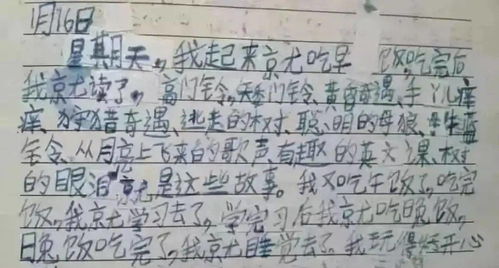 1月16日
星期天,我起来京尤吃早 饭,吃完后
我京尤读了,高门铃、矮门铃、黄昏奇遇、手丫儿痒
痒、狩猎奇遇、逃走的树、聪、明的母狼、蓝
铃、从月亮上飞来的歌声、有趣的英文课、树
的眼泪 京尤是这些故事。我又吃午饭了,吃完
饭,我京尤学习去了,学完习后我京尤吃晚饭,
晚饭吃完了,我京尤睡觉去了 我玩得好开心